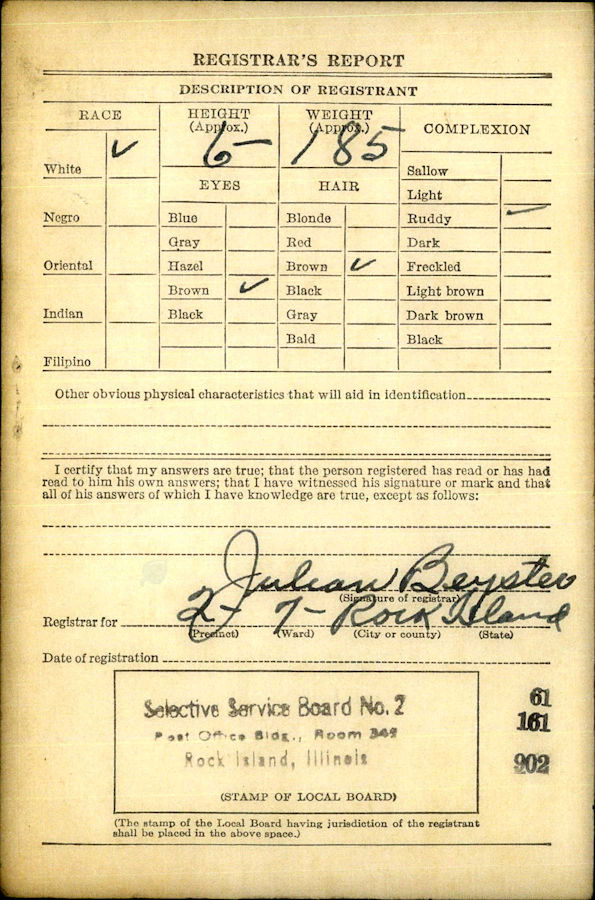 REGISTRAR'S REPORT
DESCRIPTION OF REGISTRANT
RACE
HEIGHT
(Approx.)
WEIGHT
(Approx.)
COMPLEXION
✓
6–
185
White
Sallow
EYES
HAIR
Light
Negro
Blue
Blonde
Ruddy ✓
Gray
Red
Dark
Oriental
Hazel
Brown ✓
Freckled
Brown ✓
Black
Light brown
Indian
Black
Gray
Dark brown
Bald
Black
Filipino
Other obvious physical characteristics that will aid in identification
I certify that my answers are true; that the person registered has read or has had
read to him his own answers; that I have witnessed his signature or mark and that
all of his answers of which I have knowledge are true, except as follows:
Julian Beyster
(Signature of registrar)
Registrar for 2- 7- Rock Island
(Precinct) (Ward) (City or county) (State)
Date of registration
Selective Service Board No. 2
Post Office Bldg., Room 349
Rock Island, Illinois
(STAMP OF LOCAL BOARD)
61
161
902
(The stamp of the Local Board having jurisdiction of the registrant
shall be placed in the above space.)